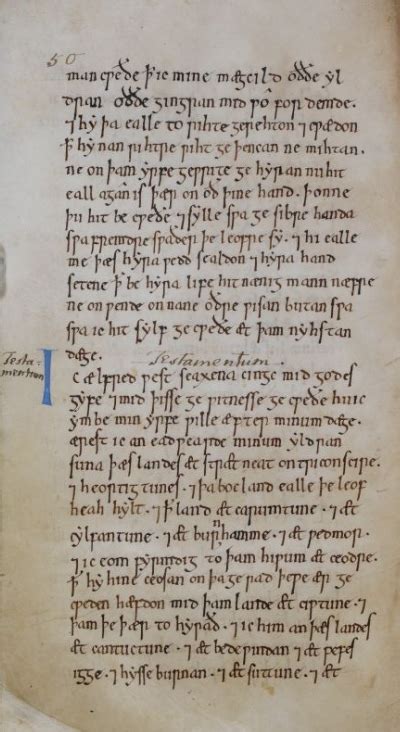 50
man cƿæde ꝥ ic mine mægcild oððe yl
dran oððe gingran mid ƿo fordemde.
⁊ hy þa ealle to rihte gerehton ⁊ cƿædon
ꝥ hy nan rihtre riht geþencan ne mihtan.
ne on þam yrfe geƿrite gehyran nu hit
eall agan is þær on oð þine hand. þonne
þu hit becƿeðe ⁊ sylle sƿa gesibre handa
sƿa fremdre sƿaðer þe leofre sy. ⁊ hi ealle
me þæs hyra ƿedd sealdon ⁊ hyra hand
setene ꝥ be hyra life hit nænig mann næfre
ne onƿende on nane oðre ƿisan butan sƿa
sƿa ic hit sylf gecƿeðe æt þam nyhstan
dæge. Testamentum.
Testa-
mentum
Ic ælfred ƿestseaxena cinge mid godes
gyfe ⁊ mid þisse geƿitnesse gecƿeðe hu ic
ymbe min yrfe ƿille æfter minum dæge.
ærest ic an eadƿearde minum yldran
suna þæs landes æt strætneat on triconscire.
⁊ heortigtunes. ⁊ þa bocland ealle þe leof
heah hylt. ⁊ ꝥ land æt carumtune. ⁊ æt
cylfantune. ⁊ æt burnhamme. ⁊ æt ƿedmor.
⁊ ic eom fyrmdig to þam hiƿum æt ceodre.
ꝥ hy hine ceosan on þa gerad þe ƿe ær ge
cƿeden hæfdon mid þam lande æt ciƿtune. ⁊
þam þe þær to hyrað. ⁊ ic him an þæs landes
æt cantuctune. ⁊ æt bedeƿindan ⁊ æt ƿefes
igge. ⁊ hysseburnan. ⁊ æt suttune. ⁊ æt